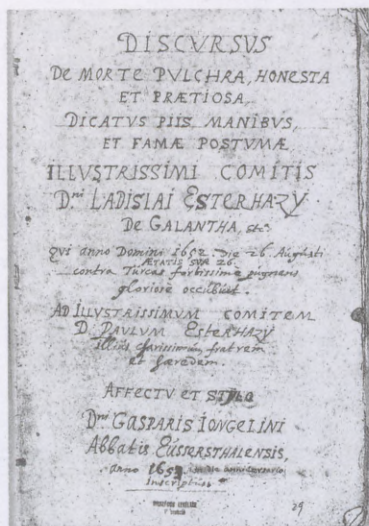 DISCVRSVS
DE MORTE PVLCHRA, HONESTA
ET PRÆTIOSA,
DICATVS PIIS MANIBVS,
ET FAMÆ POSTVMÆ
ILLVSTRISSIMI COMITIS
Dni LADISLAI ESTERHAZY
DE GALANTHA, etc
qui anno Domini 1652 die 26 Augusti
ÆTATIS SVÆ 26
contra Turcas fortissime pugnans
gloriose occubuit.
AD ILLVSTRISSIMVM COMITEM
D. PAVLVM ESTERHAZY
illius charissimum fratrem
et hæredem.
AFFECTV ET STYLO
Dni GASPARIS IONGELINI
Abbatis Eüssersthalensis,
anno 1653 anniversario
inscriptus